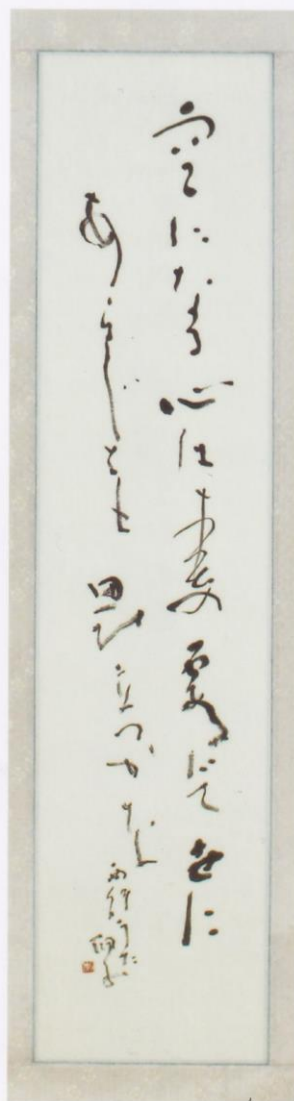 空になる心は春の霞にて世に
あらじとも思ひ立つかな
西行